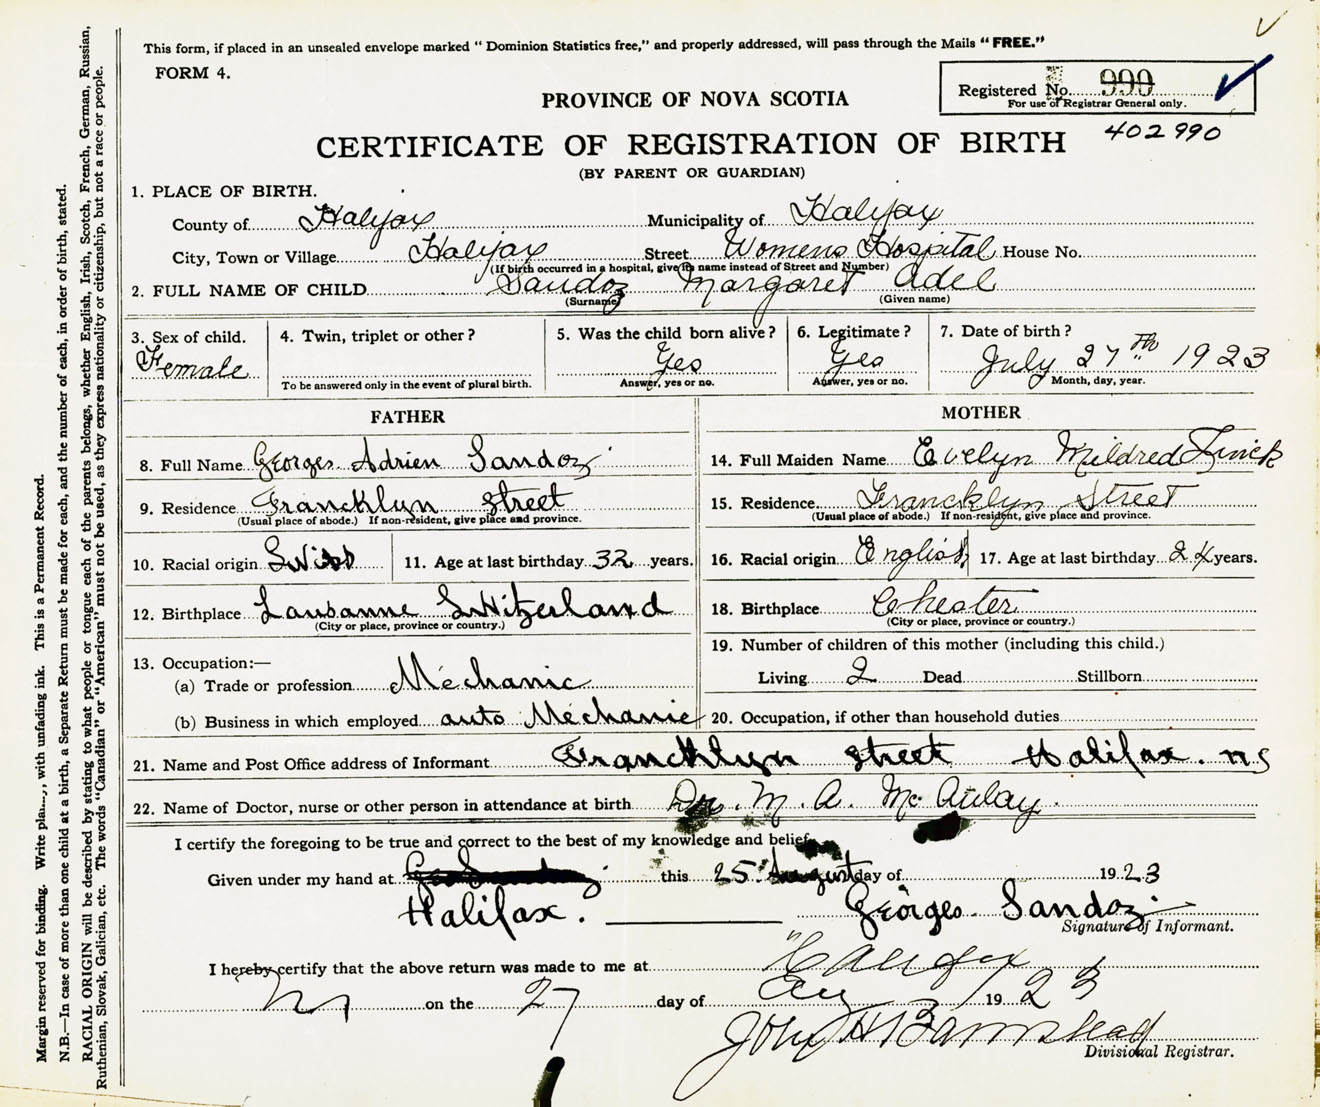 This form, if placed in an unsealed envelope marked “Dominion Statistics free,” and properly addressed, will pass through the Mails “FREE.”
FORM 4.
Registered No. 990
For use of Registrar General only.
402990
PROVINCE OF NOVA SCOTIA
CERTIFICATE OF REGISTRATION OF BIRTH
(BY PARENT OR GUARDIAN)
1. PLACE OF BIRTH.
County of Halifax Municipality of Halifax
City, Town or Village Halifax Street Womens Hospital House No.
(If birth occurred in a hospital, give its name instead of Street and Number)
2. FULL NAME OF CHILD Sandoz Margaret Adel
(Surname) (Given name)
3. Sex of child. 4. Twin, triplet or other? 5. Was the child born alive? 6. Legitimate? 7. Date of birth?
Female Yes Yes July 27th 1923
To be answered only in the event of plural birth. Answer, yes or no. Answer, yes or no. Month, day, year.
FATHER MOTHER
8. Full Name Georges Adrien Sandoz 14. Full Maiden Name Evelyn Mildred Zinck
9. Residence Francklyn Street 15. Residence Francklyn Street
(Usual place of abode.) If non-resident, give place and province. (Usual place of abode.) If non-resident, give place and province.
10. Racial origin Swiss 11. Age at last birthday 32 years. 16. Racial origin English 17. Age at last birthday 24 years.
12. Birthplace Lausanne Switzerland 18. Birthplace Chester
(City or place, province or country.) (City or place, province or country.)
19. Number of children of this mother (including this child.)
13. Occupation:—
(a) Trade or profession Mechanic Living 2 Dead Stillborn
(b) Business in which employed auto Mechanic 20. Occupation, if other than household duties
21. Name and Post Office address of Informant Francklyn street Halifax. ns
22. Name of Doctor, nurse or other person in attendance at birth Dr. M. A. McAulay.
I certify the foregoing to be true and correct to the best of my knowledge and belief.
Given under my hand at this 25 August day of 1923
Halifax. Georges Sandoz
Signature of Informant.
I hereby certify that the above return was made to me at Halifax
NS on the 27 day of Aug 1923
John H Barnstead
Divisional Registrar.
Margin reserved for binding. Write with unfading ink. This is a Permanent Record.
N.B.—In case of more than one child at a birth, a Separate Return must be made for each, and the number of each, in order of birth, stated.
RACIAL ORIGIN will be described by stating to what people or tongue each of the parents belongs, whether English, Irish, Scotch, French, German, Russian,
Ruthenian, Slovak, Galician, etc. The words “Canadian” or “American” must not be used, as they express nationality or citizenship, but not a race or people.